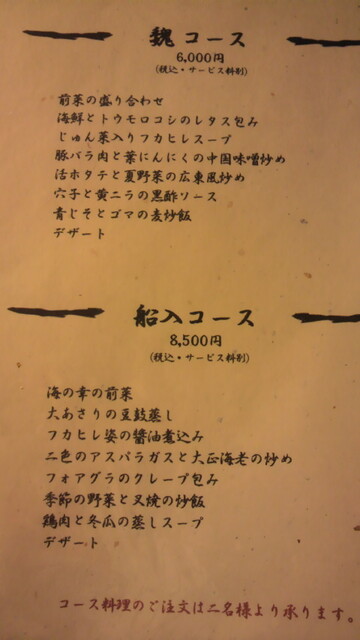 魏コース
6,000円
(税込・サービス料別)
前菜の盛り合わせ
海鮮とトウモロコシのレタス包み
じゅん菜入りフカヒレスープ
豚バラ肉と葉にんにくの中国味噌炒め
活ホタテと夏野菜の広東風炒め
穴子と黄ニラの黒酢ソース
青じそとゴマの麦炒飯
デザート
船入コース
8,500円
(税込・サービス料別)
海の幸の前菜
大あさりの豆鼓蒸し
フカヒレ姿の醤油煮込み
二色のアスパラガスと大正海老の炒め
フォアグラのクレープ包み
季節の野菜と叉焼の炒飯
鶏肉と冬瓜の蒸しスープ
デザート
コース料理のご注文は二名様より承ります。